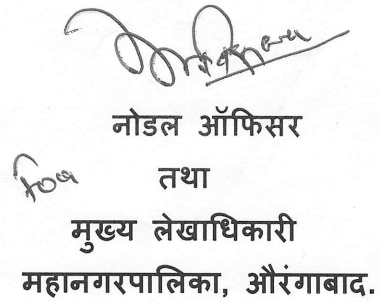 नोडल ऑफिसर
तथा
For
मुख्य लेखाधिकारी
महानगरपालिका, औरंगाबाद.